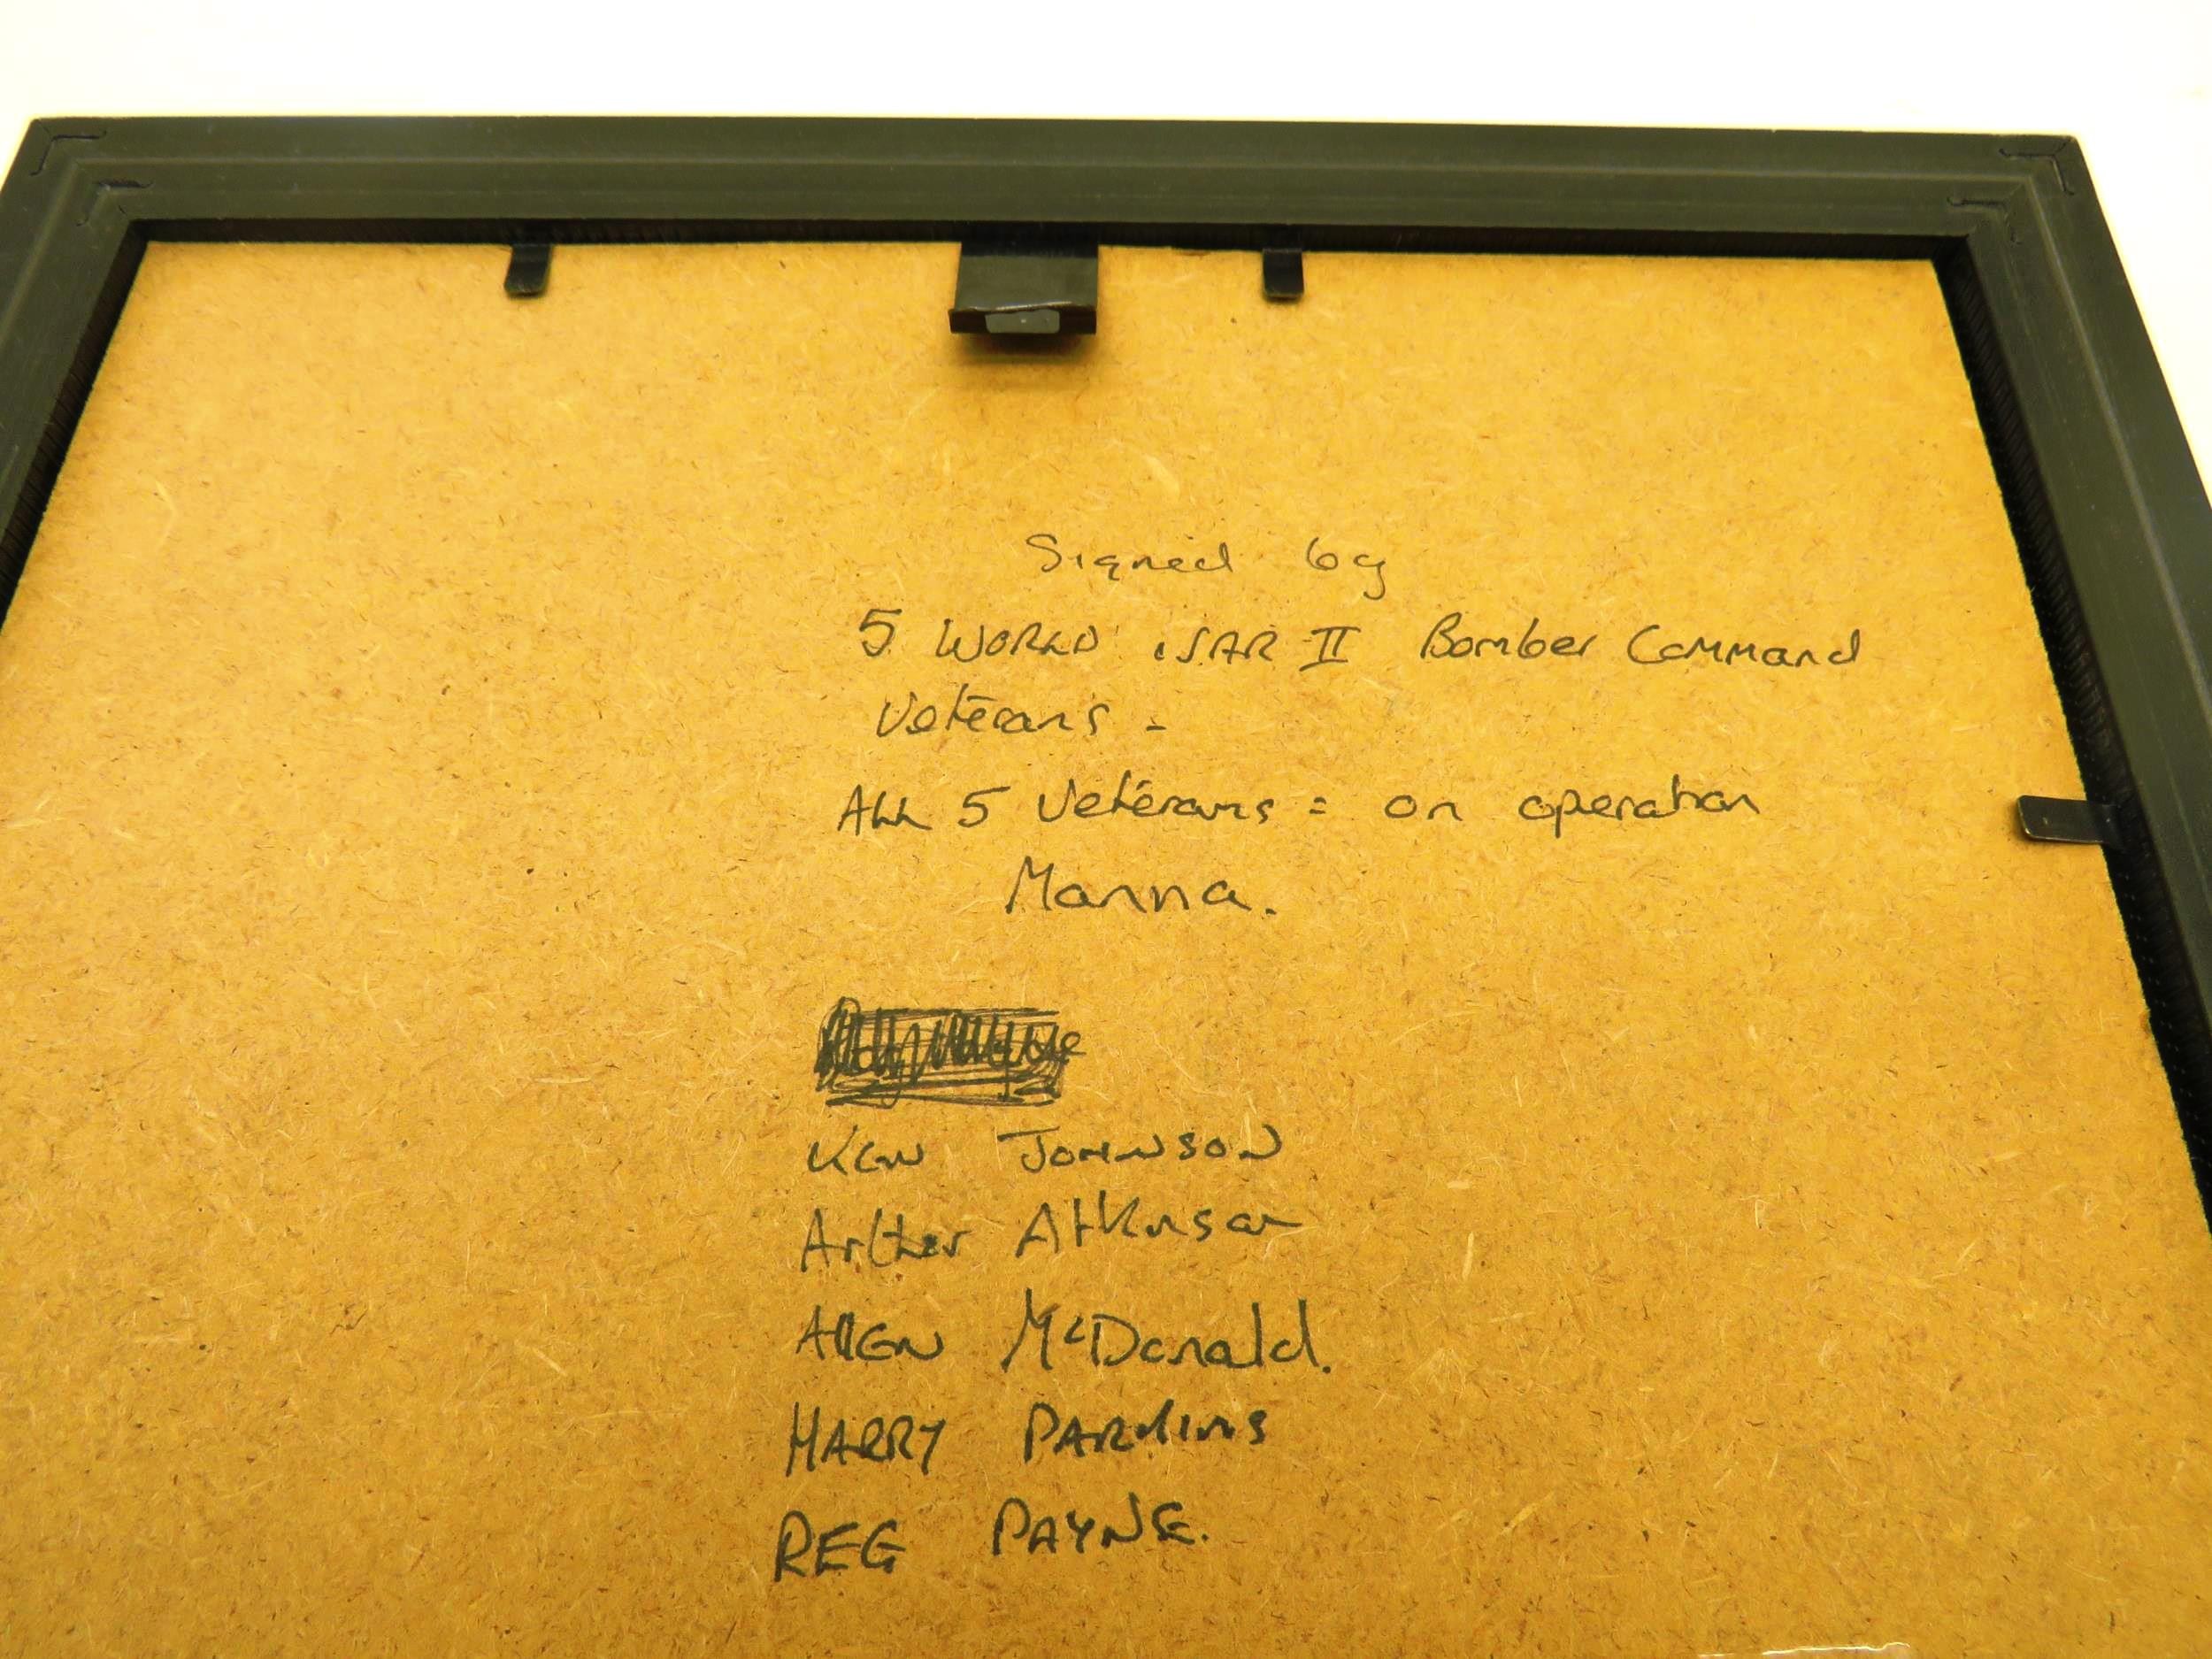 Signed by
5 WORLD WAR II Bomber Command
Veterans -
ALL 5 Veterans = on operation
Manna.
Ken JOHNSON
Arther Atkinson
AllEN McDonald.
HARRY PARKINS
REG PAYNE.